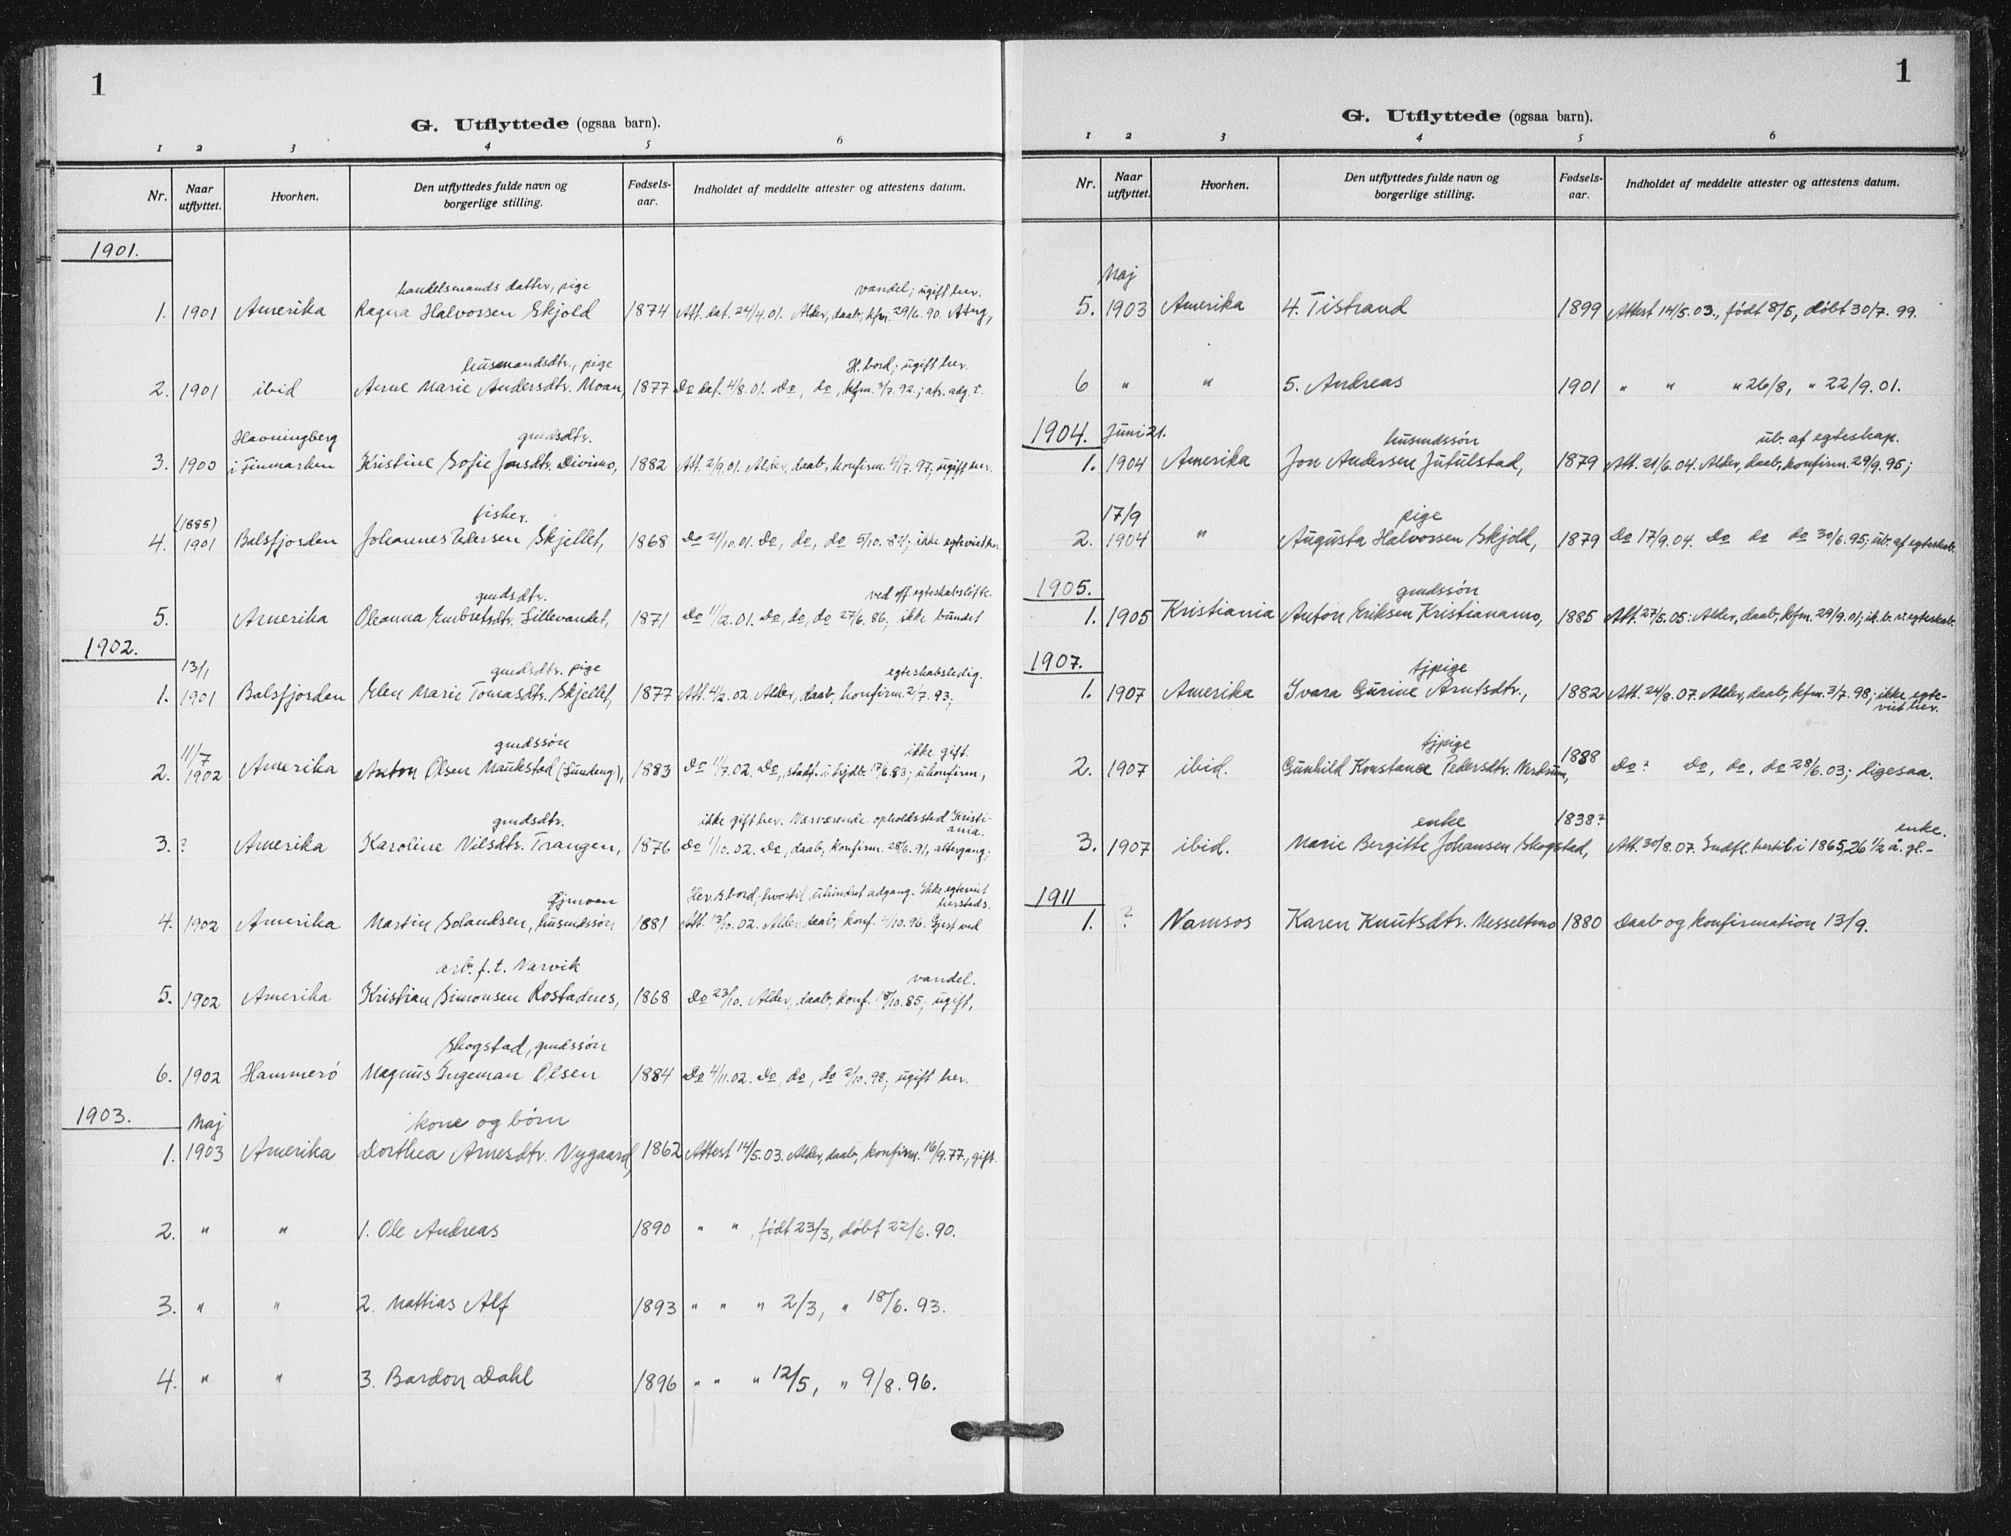 1
G. Utflyttede (ogsaa barn).
1 2 3 4 5 6
Nr. Naar utflyttet. Hvorhen. Den utflyttedes fulde navn og borgerlige stilling. Fødsels-aar. Indholdet af meddelte attester og attestens datum.
1901.
handelsmands datter, pige vandel; ugift her.
1. 1901 Amerika Ragna Halvorsen Skjold 1874 Att. dat. 24/4.01. Alder, daab, kfm. 29/6.90.
husmandsdtr., pige H. bord; ugift her.
2. 1901 ibid Anne Marie Andersdtr. Moan, 1877 Do dat. 4/8.01. Do, do, kfm. 3/7.92.; atr. adg. t.
Havningberg gmdsdtr.
3. 1900 i Finmarken Kristine Sofie Jonsdtr. Divimo, 1882 Att. 2/9.01. Alder, daab, konfirm. 4/7.97, ugift her.
(1885) fisker.
4. 1901 Balsfjorden Johannes Pedersen Skjellet, 1868 Do 21/10.01. Do, do, do 5/10.84; ikke egteviet her.
gmdsdtr. ved off egteskabsløfte.
5. Amerika Oleanna Embretsdtr. Lillevandet, 1871 Do 11/12.01. Do, do, do 27/6.86, ikke bundet
1902.
13/1 gmdsdtr. pige egteskabsledig.
1. 1901 Balsfjorden Elen Marie Tomasdtr. Skjellet, 1877 Att. 4/2.02. Alder, daab, konfirm. 2/7.93;
11/7 gmdssøn ikke gift.
2. 1902 Amerika Anton Olsen Maukstad (Sundeng), 1883 Do 11/7.02. Do, stadf. u hjdb. 17/6.83; ukonfirm,
gmdsdtr. ikke gift her. Nærværende opholdssted Kristiania.
3. ? Amerika Karoline Nilsdtr. Trangen, 1876 Do 1/10.02. Do, daab, konfirm. 28/6.91, altergang;
Fjmoen Her. s bord; hvortil uhindret adgang. Ikke egteviet hersteds.
4. 1902 Amerika Martin Solandsen, husmdssøn 1881 Att. 13/10.02. Alder, daab, konf. 4/10.96. Gjest ved
arb. f. t. Narvik vandel.
5. 1902 Amerika Kristian Simonsen Rostadnes, 1868 Do 23/10. Alder, daab, konf. 18/10.85; ugift,
Skogstad, gmdssøn
6. 1902 Hammerö Magnus Ingeman Olsen 1884 Do 4/11.02. Do, do, do 2/10.98; ugift her.
1903.
Maj kone og børn
1. 1903 Amerika Dorthea Arnesdtr. Nygaard, 1862 Attest 14/5.03. Alder, daab, konfirm. 16/9.77, gift.
2. " " 1. Ole Andreas 1890 " " , født 23/3, døbt 22/6.90.
3. " " 2. Mathias Alf 1893 " " " 2/3, " 18/6.93.
4. " " 3. Bardon Dahl 1896 " " " 12/5, " 9/8.96.
1
G. Utflyttede (ogsaa barn).
1 2 3 4 5 6
Nr. Naar utflyttet. Hvorhen. Den utflyttedes fulde navn og borgerlige stilling. Fødsels-aar. Indholdet af meddelte attester og attestens datum.
Maj
5. 1903 Amerika 4. Tistrand 1899 Attest 14/5.03., født 8/5, døbt 30/7.99.
6 " " 5. Andreas 1901 " " " 26/8, " 22/9.01.
1904. Juni 21. husmdssøn ub. af egteskap.
1. 1904 Amerika Jon Andersen Jutulstad, 1879 Att. 21/6.04. Alder, daab, konfirm. 29/9.95;
17/9 pige
2. 1904 " Augusta Halvorsen Skjold, 1879 Do 17/9.04. Do do do 30/6.95; ub. af egteskab.
1905. gmdssøn
1. 1905 Kristiania Anton Eriksen Kristianamo, 1885 Att. 27/5.05: Alder, daab, kfm. 29/9.01; ik. b. v. egteskab.
1907. tjpige
1. 1907 Amerika Ivara Gurine Arntsdtr., 1882 Att. 24/8.07. Alder, daab, kfm. 3/7.98; ikke egteviet her.
tjpige
2. 1907 ibid. Gunhild Konstance Pedersdtr. Nerdrum, 1888 Do? Do, do, do 28/6.03; ligesaa.
enke 1838? enke.
3. 1907 ibid. Marie Bergitte Johansen Skogstad, Att. 30/8.07. Indfl. hertil i 1865, 26 1/2 å. gl.-
1911
1. ? Namsos Karen Knutsdtr. Nesseltmo 1880 Daab og konfirmation 13/9.